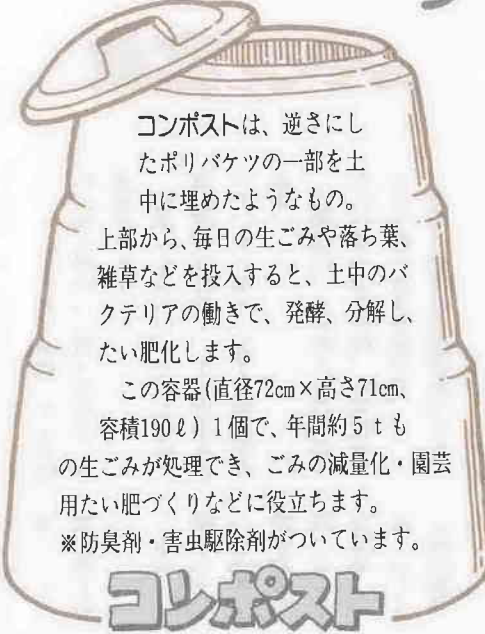 コンポストは、逆さにし
たポリバケツの一部を土
中に埋めたようなもの。
上部から、毎日の生ごみや落ち葉、
雑草などを投入すると、土中のバ
クテリアの働きで、発酵、分解し、
たい肥化します。
この容器(直径72cm×高さ71cm、
容積190ℓ)1個で、年間約5tも
の生ごみが処理でき、ごみの減量化・園芸
用たい肥づくりなどに役立ちます。
※防臭剤・害虫駆除剤がついています。
コンポスト